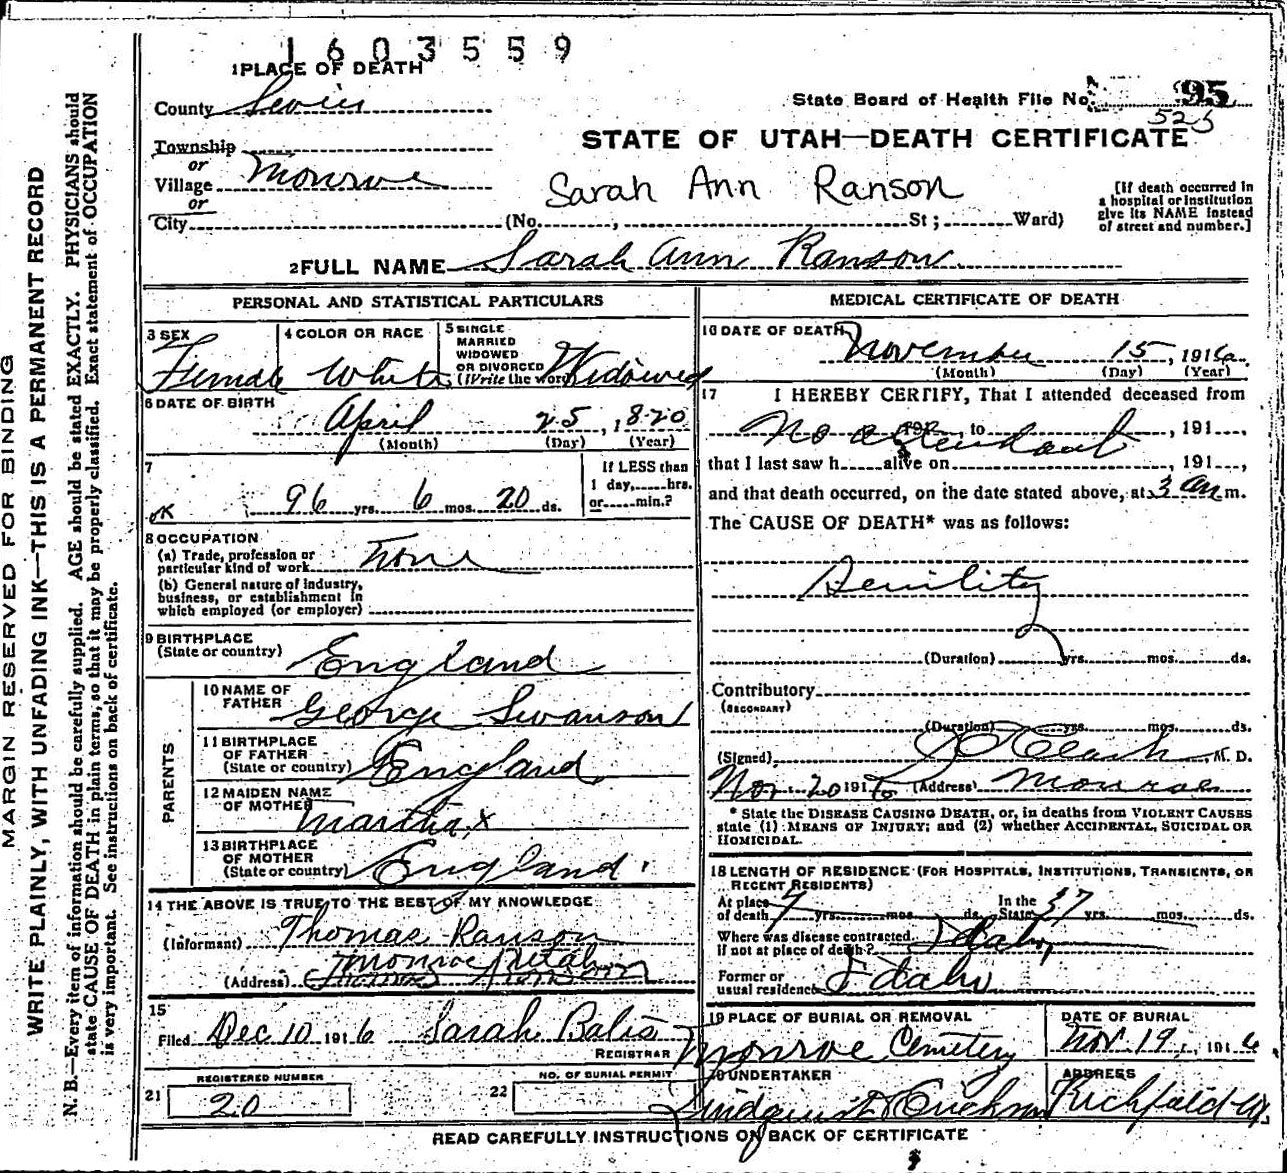 1603559
1 PLACE OF DEATH
County Sevier
State Board of Health File No. 95
525
STATE OF UTAH—DEATH CERTIFICATE
Township
or
Village Monroe
or
City
(No. , St; Ward)
Sarah Ann Ranson
[If death occurred in
a hospital or institution
give its NAME instead
of street and number.]
2 FULL NAME Sarah Ann Ranson
PERSONAL AND STATISTICAL PARTICULARS
3 SEX
Female
4 COLOR OR RACE
White
5 SINGLE
MARRIED
WIDOWED
OR DIVORCED
(Write the word)
Widowed
6 DATE OF BIRTH
April 25, 1820
(Month) (Day) (Year)
7
If LESS than
1 day, hrs.
or min.?
OK 96 yrs. 6 mos. 20 ds.
8 OCCUPATION
(a) Trade, profession or
particular kind of work None
(b) General nature of industry,
business, or establishment in
which employed (or employer)
9 BIRTHPLACE
(State or country) England
PARENTS
10 NAME OF
FATHER George Swanson
11 BIRTHPLACE
OF FATHER
(State or country) England
12 MAIDEN NAME
OF MOTHER Martha x
13 BIRTHPLACE
OF MOTHER
(State or country) England
14 THE ABOVE IS TRUE TO THE BEST OF MY KNOWLEDGE
(Informant) Thomas Ranson
Monroe Utah
(Address)
15
Filed Dec 10 1916 Sarah Balis
REGISTRAR
21 REGISTERED NUMBER
20
22 NO. OF BURIAL PERMIT
MEDICAL CERTIFICATE OF DEATH
16 DATE OF DEATH
November 15, 1916
(Month) (Day) (Year)
17 I HEREBY CERTIFY, That I attended deceased from
No attendant 191 , to , 191 ,
that I last saw h alive on , 191 ,
and that death occurred, on the date stated above, at 3 am m.
The CAUSE OF DEATH* was as follows:
Senility
(Duration) yrs. mos. ds.
Contributory
(SECONDARY)
(Duration) yrs. mos. ds.
(Signed) M. D.
Nov. 20 1916 (Address) Monroe
* State the DISEASE CAUSING DEATH, or, in deaths from VIOLENT CAUSES
state (1) MEANS OF INJURY; and (2) whether ACCIDENTAL, SUICIDAL OR
HOMICIDAL.
18 LENGTH OF RESIDENCE (FOR HOSPITALS, INSTITUTIONS, TRANSIENTS, OR
RECENT RESIDENTS)
At place
of death 7 yrs. mos. ds. In the
State 37 yrs. mos. ds.
Where was disease contracted,
if not at place of death? Idaho
Former or
usual residence Idaho
19 PLACE OF BURIAL OR REMOVAL
Monroe Cemetery
DATE OF BURIAL
Nov. 19, 1916
20 UNDERTAKER
Lindquist & Erickson
ADDRESS
Richfield U.
READ CAREFULLY INSTRUCTIONS ON BACK OF CERTIFICATE
MARGIN RESERVED FOR BINDING
WRITE PLAINLY, WITH UNFADING INK—THIS IS A PERMANENT RECORD
N. B.—Every item of information should be carefully supplied. AGE should be stated EXACTLY. PHYSICIANS should
state CAUSE OF DEATH in plain terms, so that it may be properly classified. Exact statement of OCCUPATION
is very important. See instructions on back of certificate.